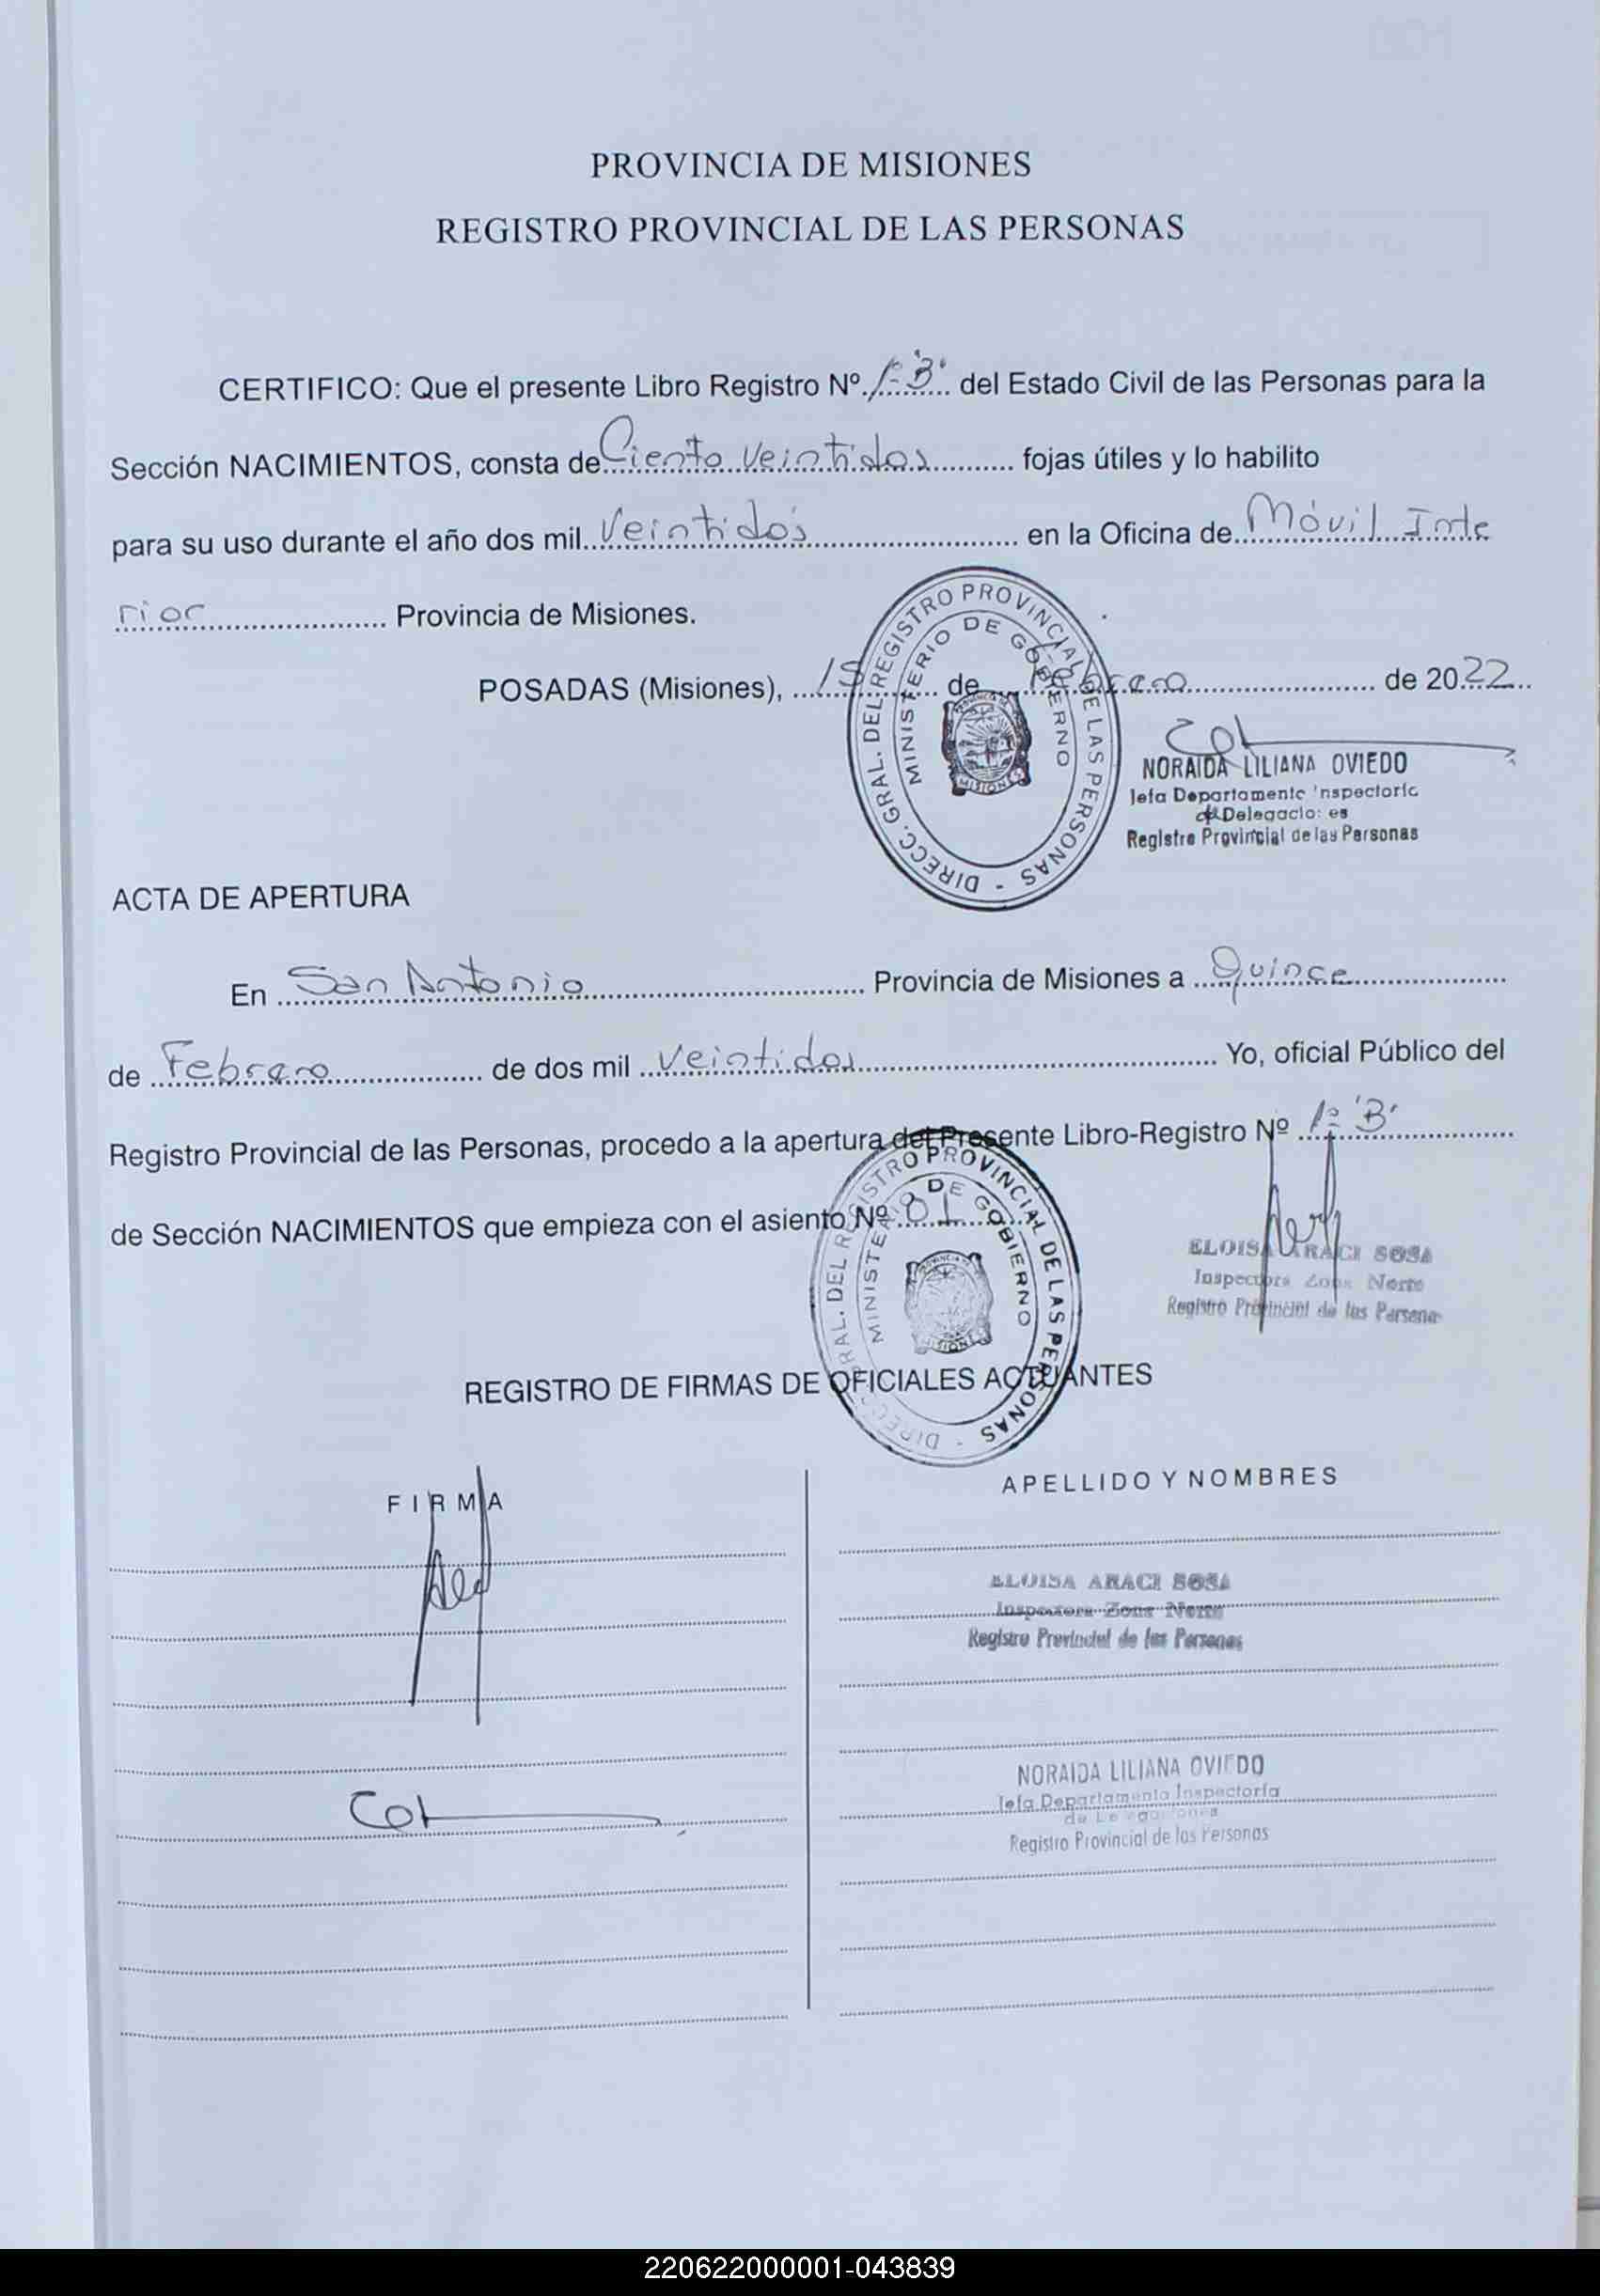 PROVINCIA DE MISIONES
REGISTRO PROVINCIAL DE LAS PERSONAS
CERTIFICO: Que el presente Libro Registro Nº. 1º "B" del Estado Civil de las Personas para la
Sección NACIMIENTOS, consta de Ciento Veintidos fojas útiles y lo habilito
para su uso durante el año dos mil Veintidos en la Oficina de Móvil Inte
rior Provincia de Misiones.
POSADAS (Misiones), 15 de Febrero de 2022
DIRECC. GRAL. DEL REGISTRO PROVINCIAL DE LAS PERSONAS -
MINISTERIO DE GOBIERNO
PROVINCIA DE
MISIONES
NORAIDA LILIANA OVIEDO
Jefa Departamento Inspectoría
de Delegaciones
Registro Provincial de las Personas
ACTA DE APERTURA
En San Antonio Provincia de Misiones a Quince
de Febrero de dos mil Veintidos Yo, oficial Público del
Registro Provincial de las Personas, procedo a la apertura del Presente Libro-Registro Nº 1º "B"
de Sección NACIMIENTOS que empieza con el asiento Nº 81
DIRECC. GRAL. DEL REGISTRO PROVINCIAL DE LAS PERSONAS -
MINISTERIO DE GOBIERNO
PROVINCIA DE
MISIONES
ELOISA ARACI SOSA
Inspectora Zona Norte
Registro Provincial de las Personas
REGISTRO DE FIRMAS DE OFICIALES ACTUANTES
FIRMA
APELLIDO Y NOMBRES
ELOISA ARACI SOSA
Inspectora Zona Norte
Registro Provincial de las Personas
NORAIDA LILIANA OVIEDO
Jefa Departamento Inspectoría
de Delegaciones
Registro Provincial de las Personas
220622000001-043839